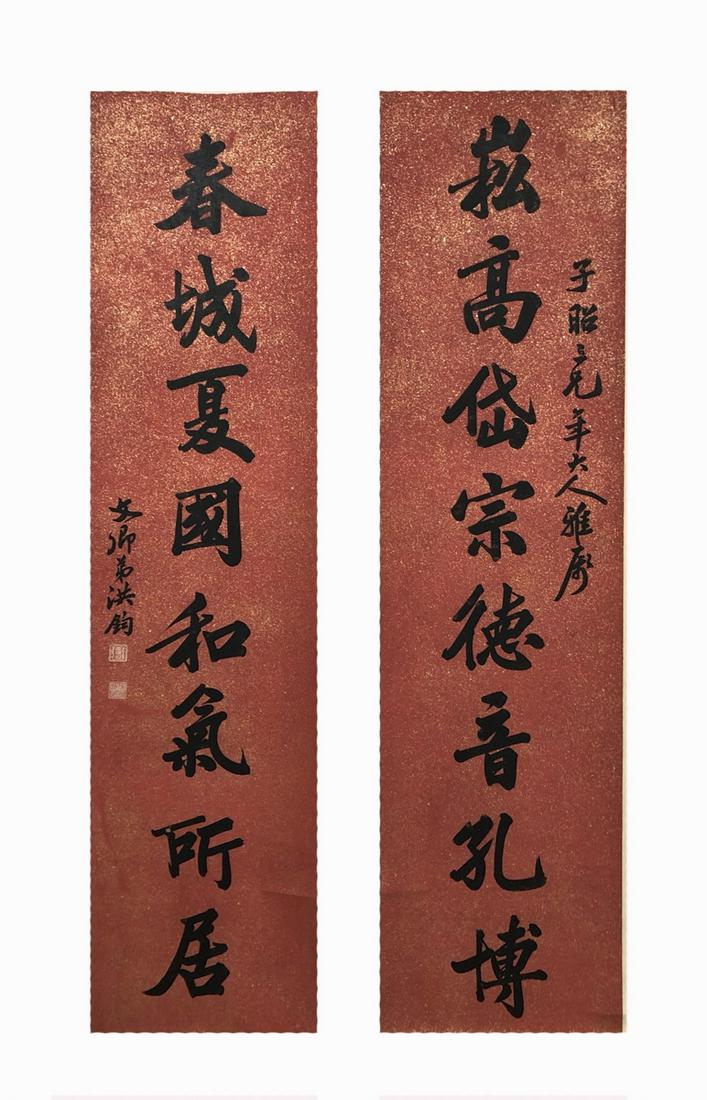 崧高岱宗德音孔博
子昭三兄年大人雅屬
春城夏國和氣所居
文卿弟洪鈞